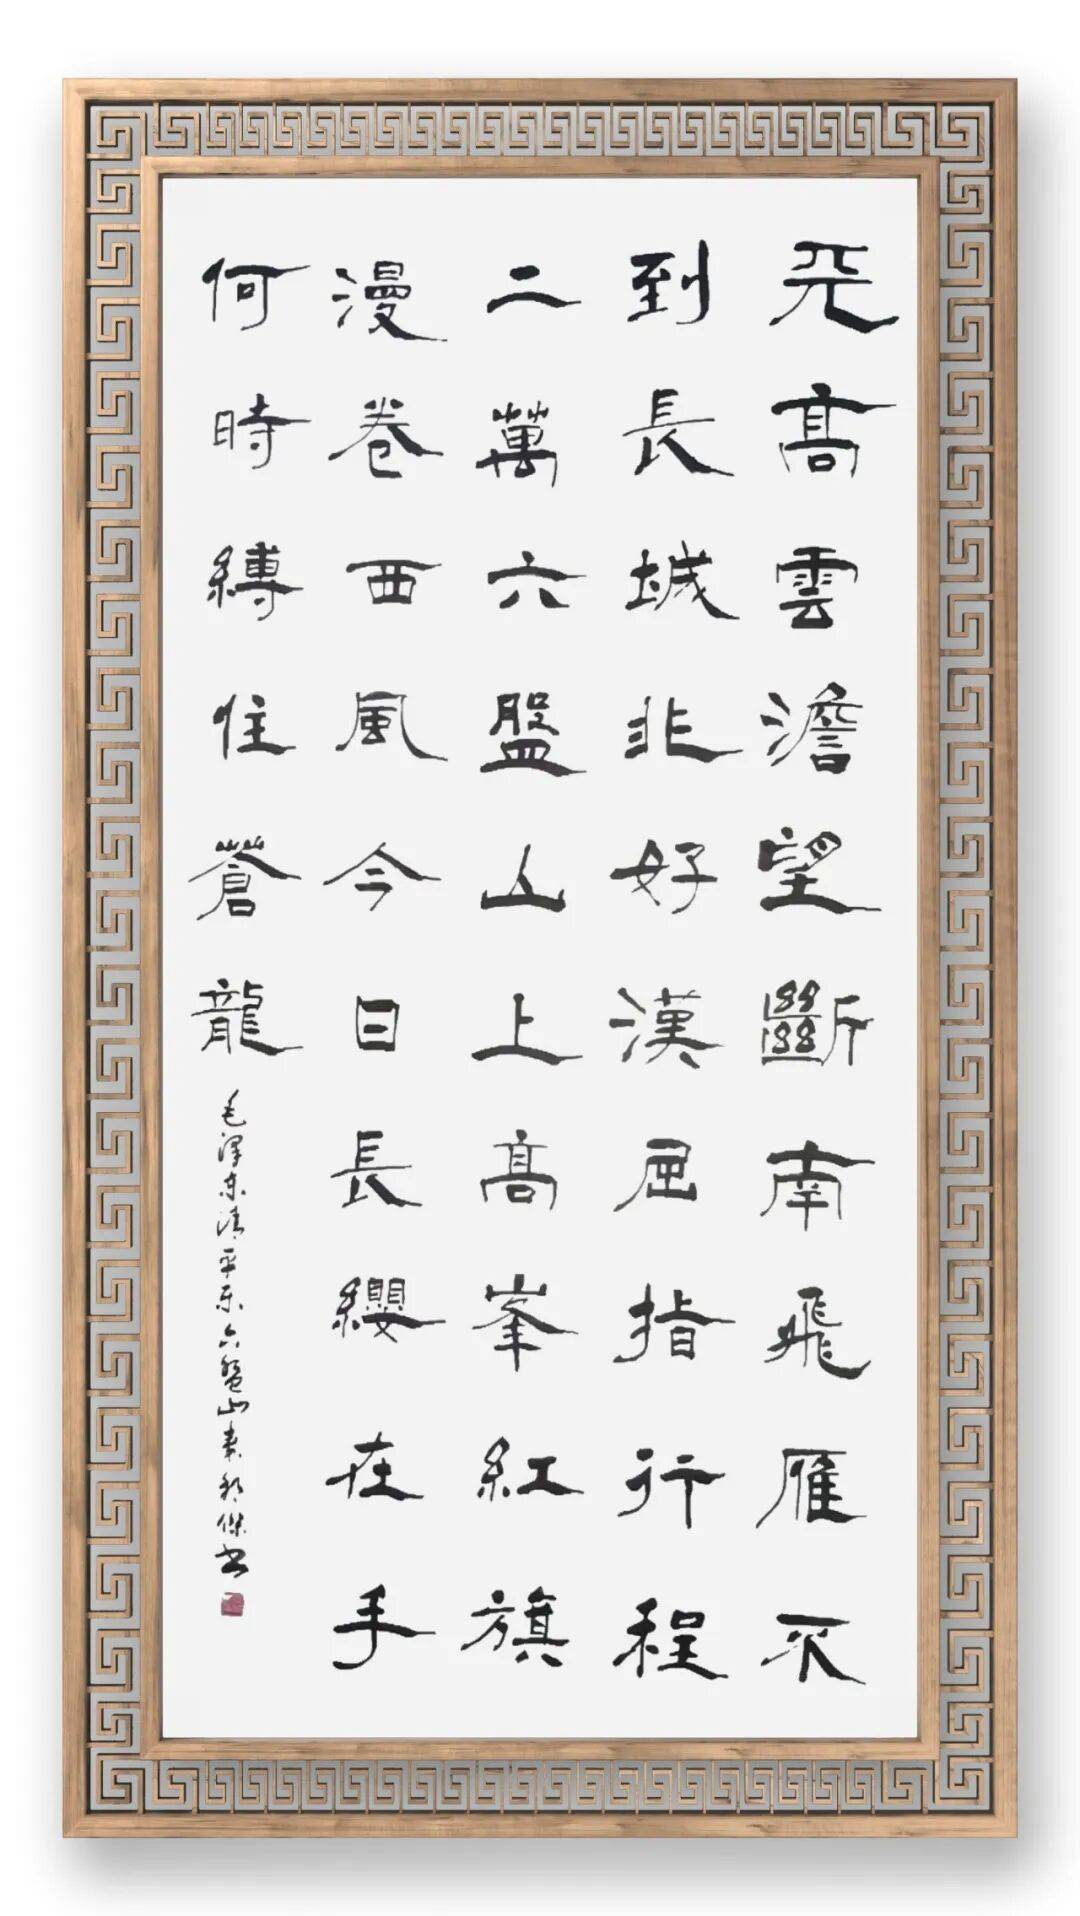 天高雲澹望斷南飛雁不
到長城非好漢屈指行程
二萬六盤山上高峯紅旗
漫卷西風今日長纓在手
何時縛住蒼龍
毛澤东清平乐六盤山傑书